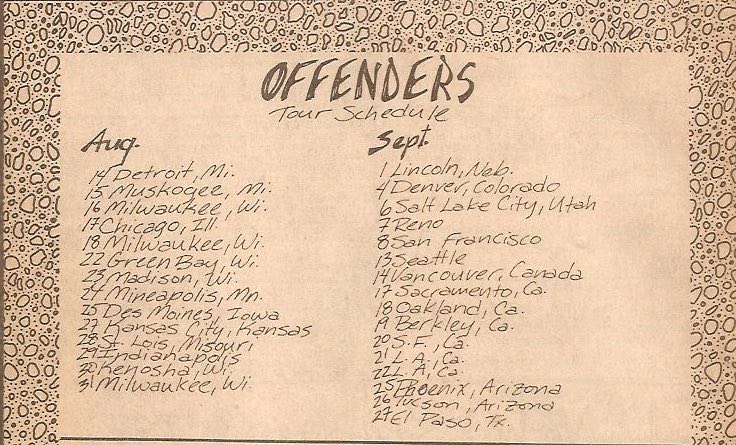 OFFENDERS
Tour Schedule
Aug.
14 Detroit, Mi.
15 Muskogee, Mi.
16 Milwaukee, Wi.
17 Chicago, Ill.
18 Milwaukee, Wi.
22 Green Bay, Wi.
23 Madison, Wi.
24 Mineapolis, Mn.
25 Des Moines, Iowa
27 Kansas City, Kansas
28 St. Lois, Misouri
29 Indianapolis
30 Kenosha, Wi.
31 Milwaukee, Wi.
Sept.
1 Lincoln, Neb.
4 Denver, Colorado
6 Salt Lake City, Utah
7 Reno
8 San Francisco
13 Seattle
14 Vancouver, Canada
17 Sacramento, Ca.
18 Oakland, Ca.
19 Berkley, Ca.
20 S.F., Ca.
21 L.A., Ca.
22 L.A., Ca.
25 Phoenix, Arizona
26 Tucson, Arizona
27 El Paso, Tx.